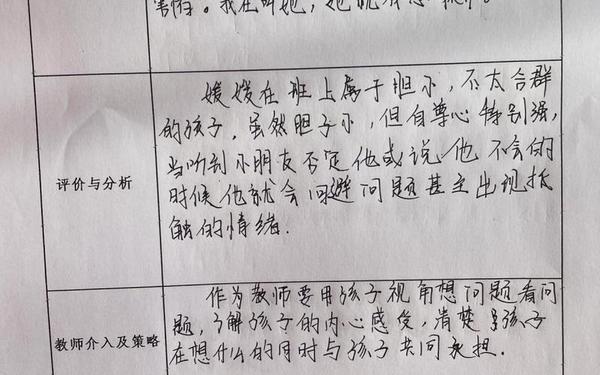 害怕。我在叫她,她就
媛媛在班上属于胆小,不太合群
的孩子,虽然胆子小,但自尊心特别强,
当听到小朋友否定他或说他不会的
评价与分析
时候他就会回避问题甚至出现抵
触的情绪.
作为教师要用孩子视角想问题看问
题,了解孩子的内心感受,清楚孩子
教师介入及策略
在想什么的同时与孩子共同承担.